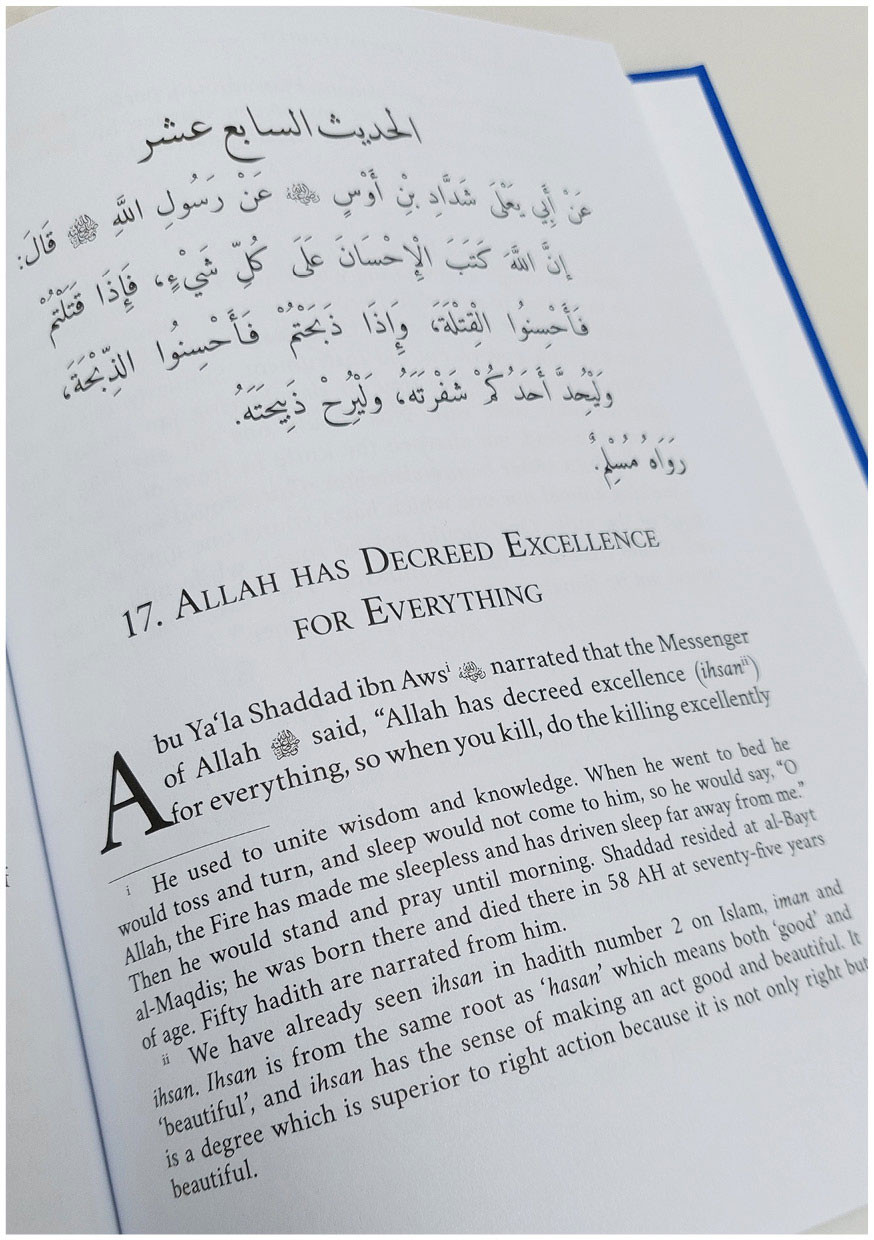 الحديث السابع عشر
عَنْ أَبِي يَعْلَى شَدَّادِ بْنِ أَوْسٍ ﵁ عَنْ رَسُولِ اللَّهِ ﷺ قَالَ:
إِنَّ اللَّهَ كَتَبَ الْإِحْسَانَ عَلَى كُلِّ شَيْءٍ، فَإِذَا قَتَلْتُمْ
فَأَحْسِنُوا الْقِتْلَةَ، وَإِذَا ذَبَحْتُمْ فَأَحْسِنُوا الذِّبْحَةَ،
وَلْيُحِدَّ أَحَدُكُمْ شَفْرَتَهُ، وَلْيُرِحْ ذَبِيحَتَهُ.
رَوَاهُ مُسْلِمٌ.
17. ALLAH HAS DECREED EXCELLENCE
FOR EVERYTHING
Abu Ya‘la Shaddad ibn Awsⁱ ﵁ narrated that the Messenger
of Allah ﷺ said, “Allah has decreed excellence (ihsanⁱⁱ)
for everything, so when you kill, do the killing excellently
i He used to unite wisdom and knowledge. When he went to bed he
would toss and turn, and sleep would not come to him, so he would say, “O
Allah, the Fire has made me sleepless and has driven sleep far away from me.”
Then he would stand and pray until morning. Shaddad resided at al-Bayt
al-Maqdis; he was born there and died there in 58 AH at seventy-five years
of age. Fifty hadith are narrated from him.
ii We have already seen ihsan in hadith number 2 on Islam, iman and
ihsan. Ihsan is from the same root as ‘hasan’ which means both ‘good’ and
‘beautiful’, and ihsan has the sense of making an act good and beautiful. It
is a degree which is superior to right action because it is not only right but
beautiful.